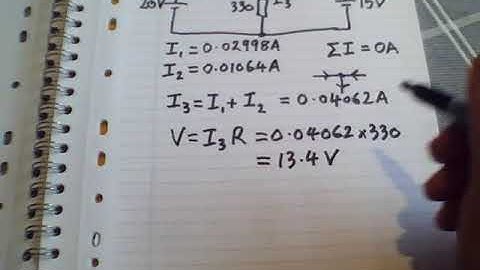 20V 330 I3 15V
I₁ = 0.02998A ΣI = 0A
I₂ = 0.01064A
I₃ = I₁ + I₂ = 0.04062A
V = I₃ R = 0.04062 × 330
= 13.4 V